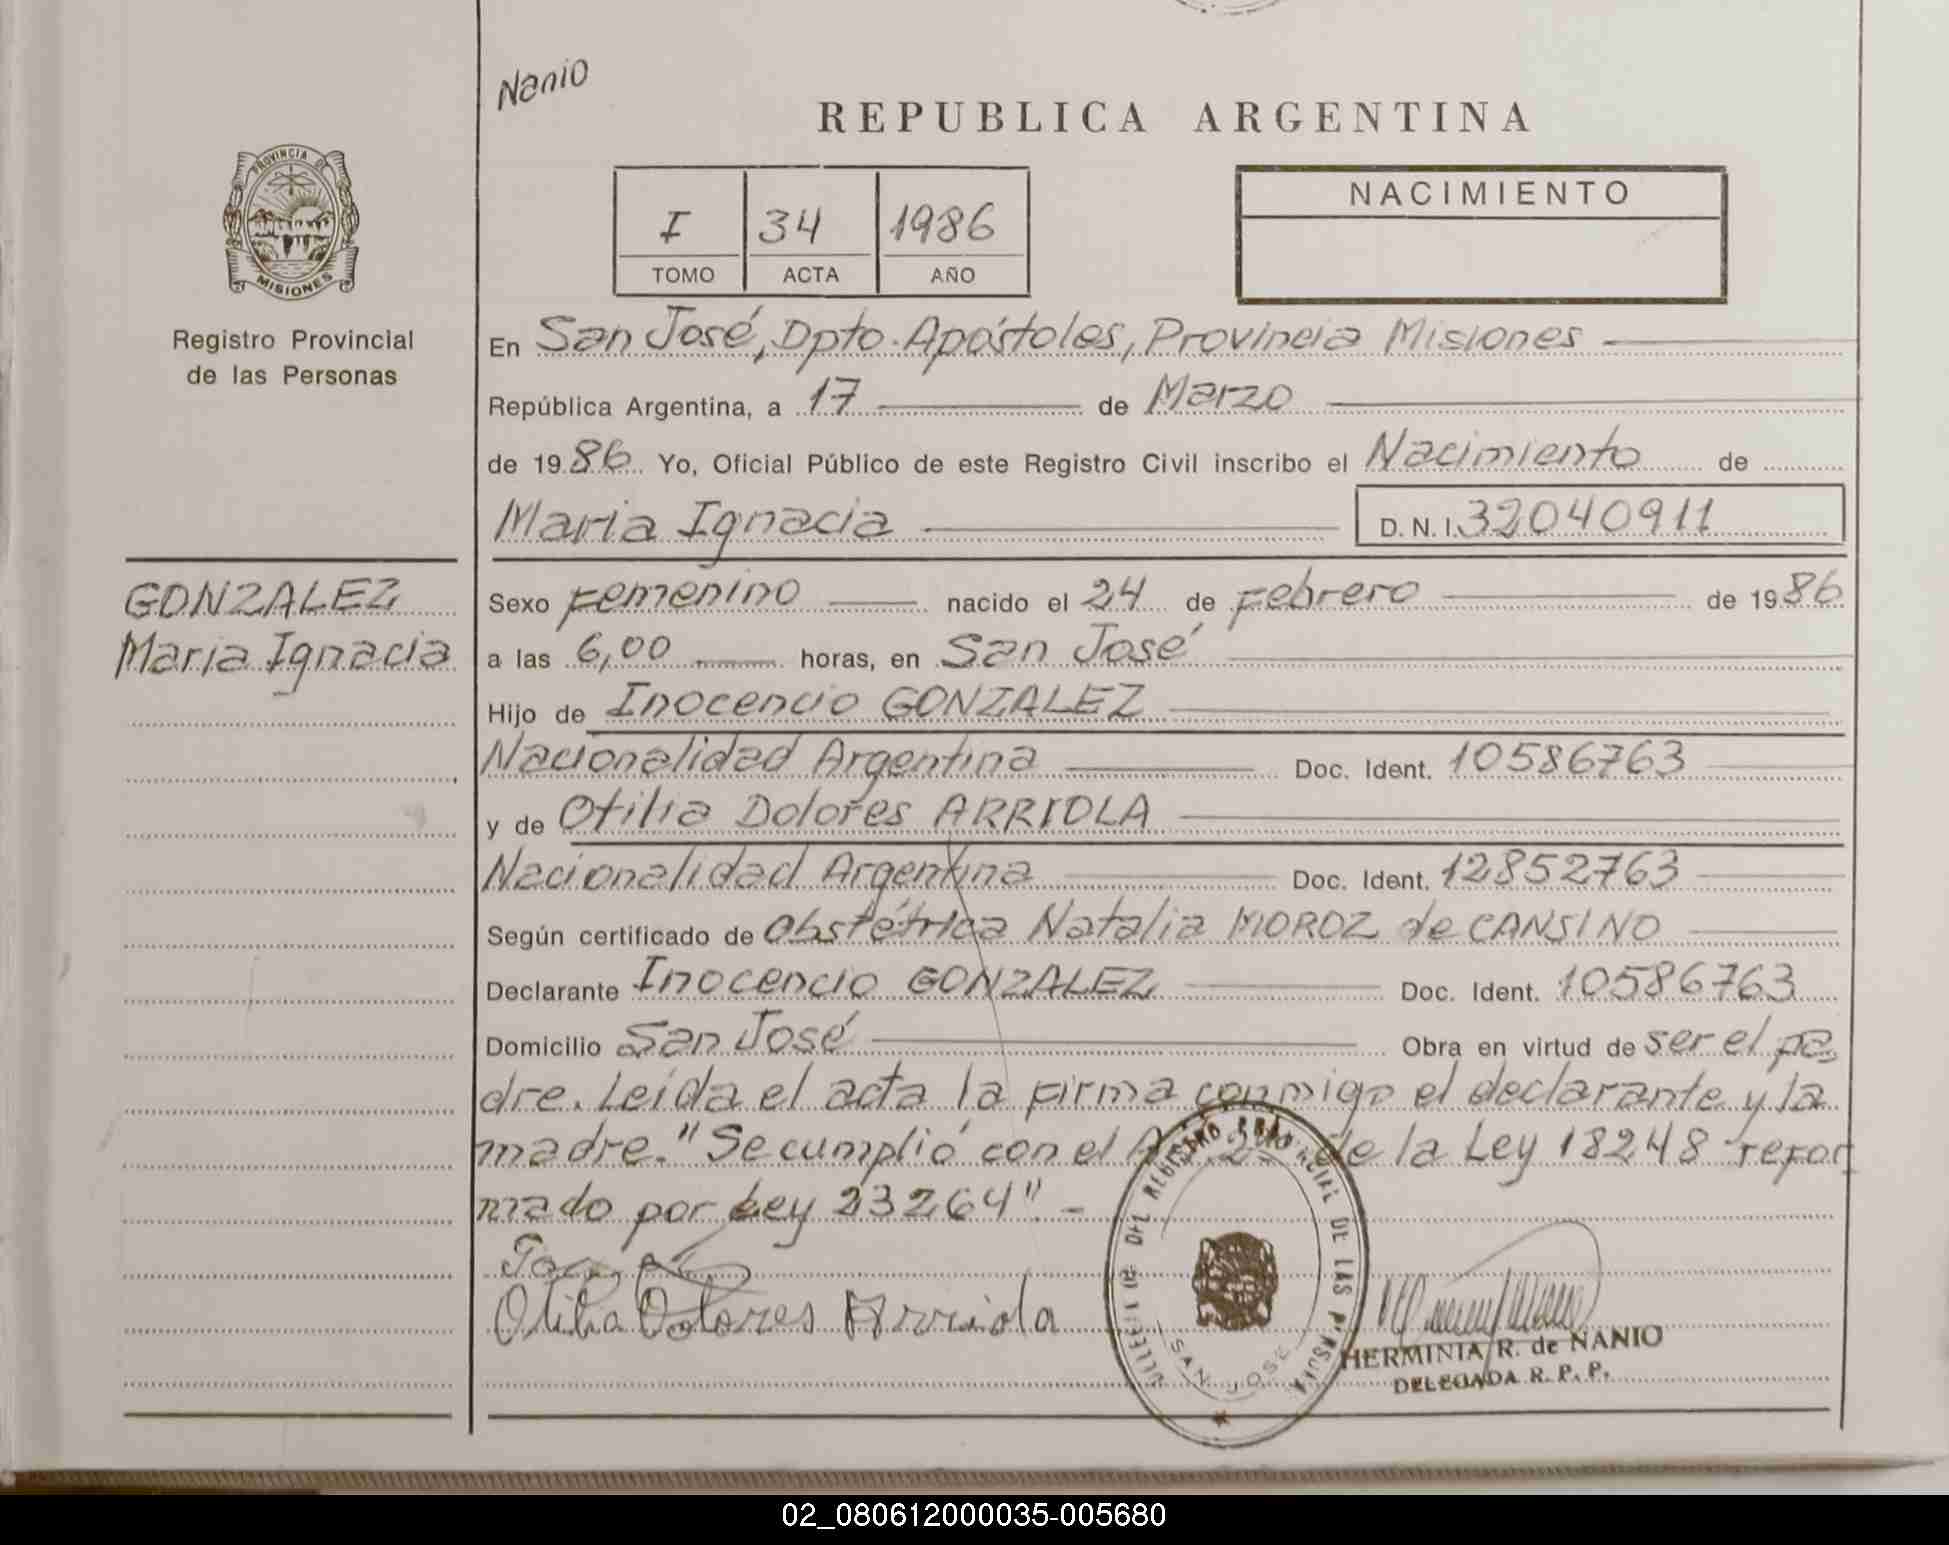 Nanio
REPUBLICA ARGENTINA
PROVINCIA DE
MISIONES
Registro Provincial
de las Personas
I 34 1986
TOMO ACTA AÑO
NACIMIENTO
En San José, Dpto. Apóstoles, Provincia Misiones
República Argentina, a 17 de Marzo
de 1986 Yo, Oficial Público de este Registro Civil inscribo el Nacimiento de
Maria Ignacia D. N. I. 32040911
GONZALEZ
Maria Ignacia
Sexo Femenino nacido el 24 de Febrero de 1986
a las 6,00 horas, en San José
Hijo de Inocencio GONZALEZ
Nacionalidad Argentina Doc. Ident. 10586763
y de Otilia Dolores ARRIOLA
Nacionalidad Argentina Doc. Ident. 12852763
Según certificado de Obstétrica Natalia MOROZ de CANSINO
Declarante Inocencio GONZALEZ Doc. Ident. 10586763
Domicilio San José Obra en virtud de ser el pa-
dre. Leída el acta la firma conmigo el declarante y la
madre. "Se cumplió con el de la Ley 18248 refor
mado por Ley 23264" -
Otilia Dolores Arriola
DEL REGISTRO PROVINCIAL DE LAS PERSONAS
SAN JOSE
HERMINIA R. de NANIO
DELEGADA R. P. P.
02_080612000035-005680